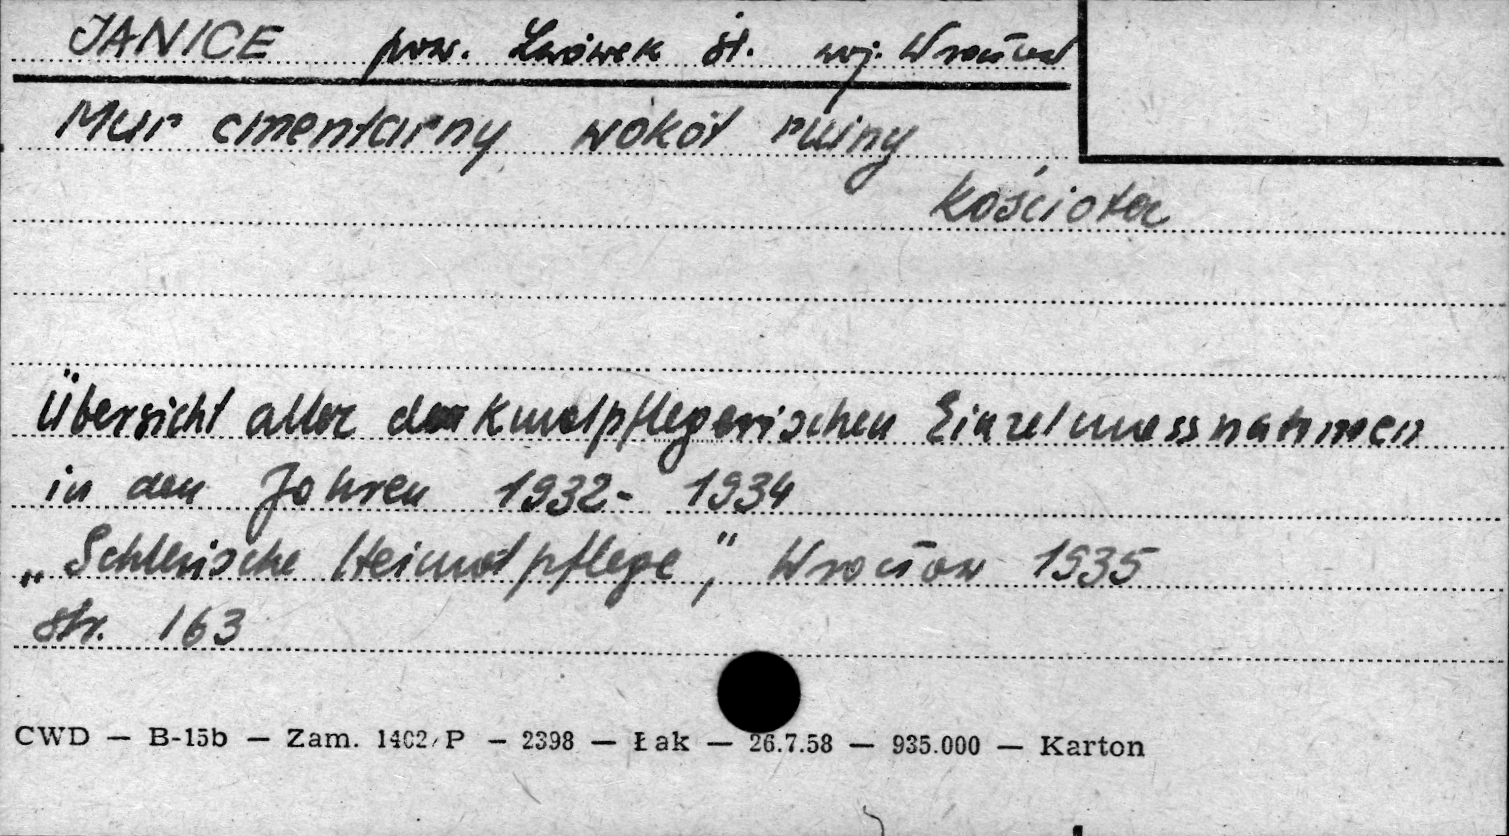 JANICE pow. Lwówek śl. woj. Wrocław
Mur cmentarny wokół ruiny
kościoła
Übersicht aller denkmalpflegerischen Einzelmassnahmen
in den Jahren 1932- 1934
„Schlesische Heimatpflege", Wrocław 1935
str. 163
CWD — B-15b — Zam. 1402/P — 2398 — Łak — 26.7.58 — 935.000 — Karton